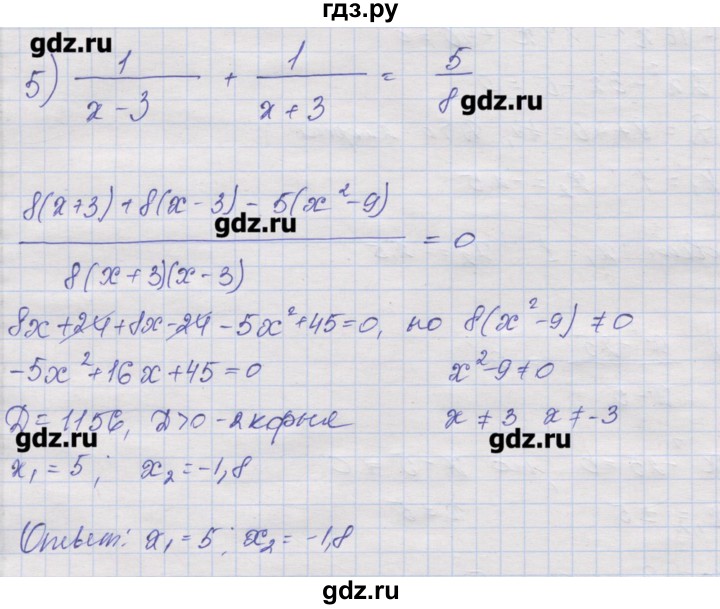 гдз.ру
gdz.ru
5) 1/(x-3) + 1/(x+3) = 5/8
gdz.ru
(8(x+3)+8(x-3)-5(x²-9))/(8(x+3)(x-3)) = 0
gdz.ru
8x+24+8x-24-5x²+45=0, но 8(x²-9)≠0
-5x²+16x+45=0 x²-9≠0
D=1156, D>0-2 корня x≠3 x≠-3
gdz.ru gdz.ru
x₁=5; x₂=-1,8
Ответ: x₁=5; x₂=-1,8
gdz.ru
gdz.ru